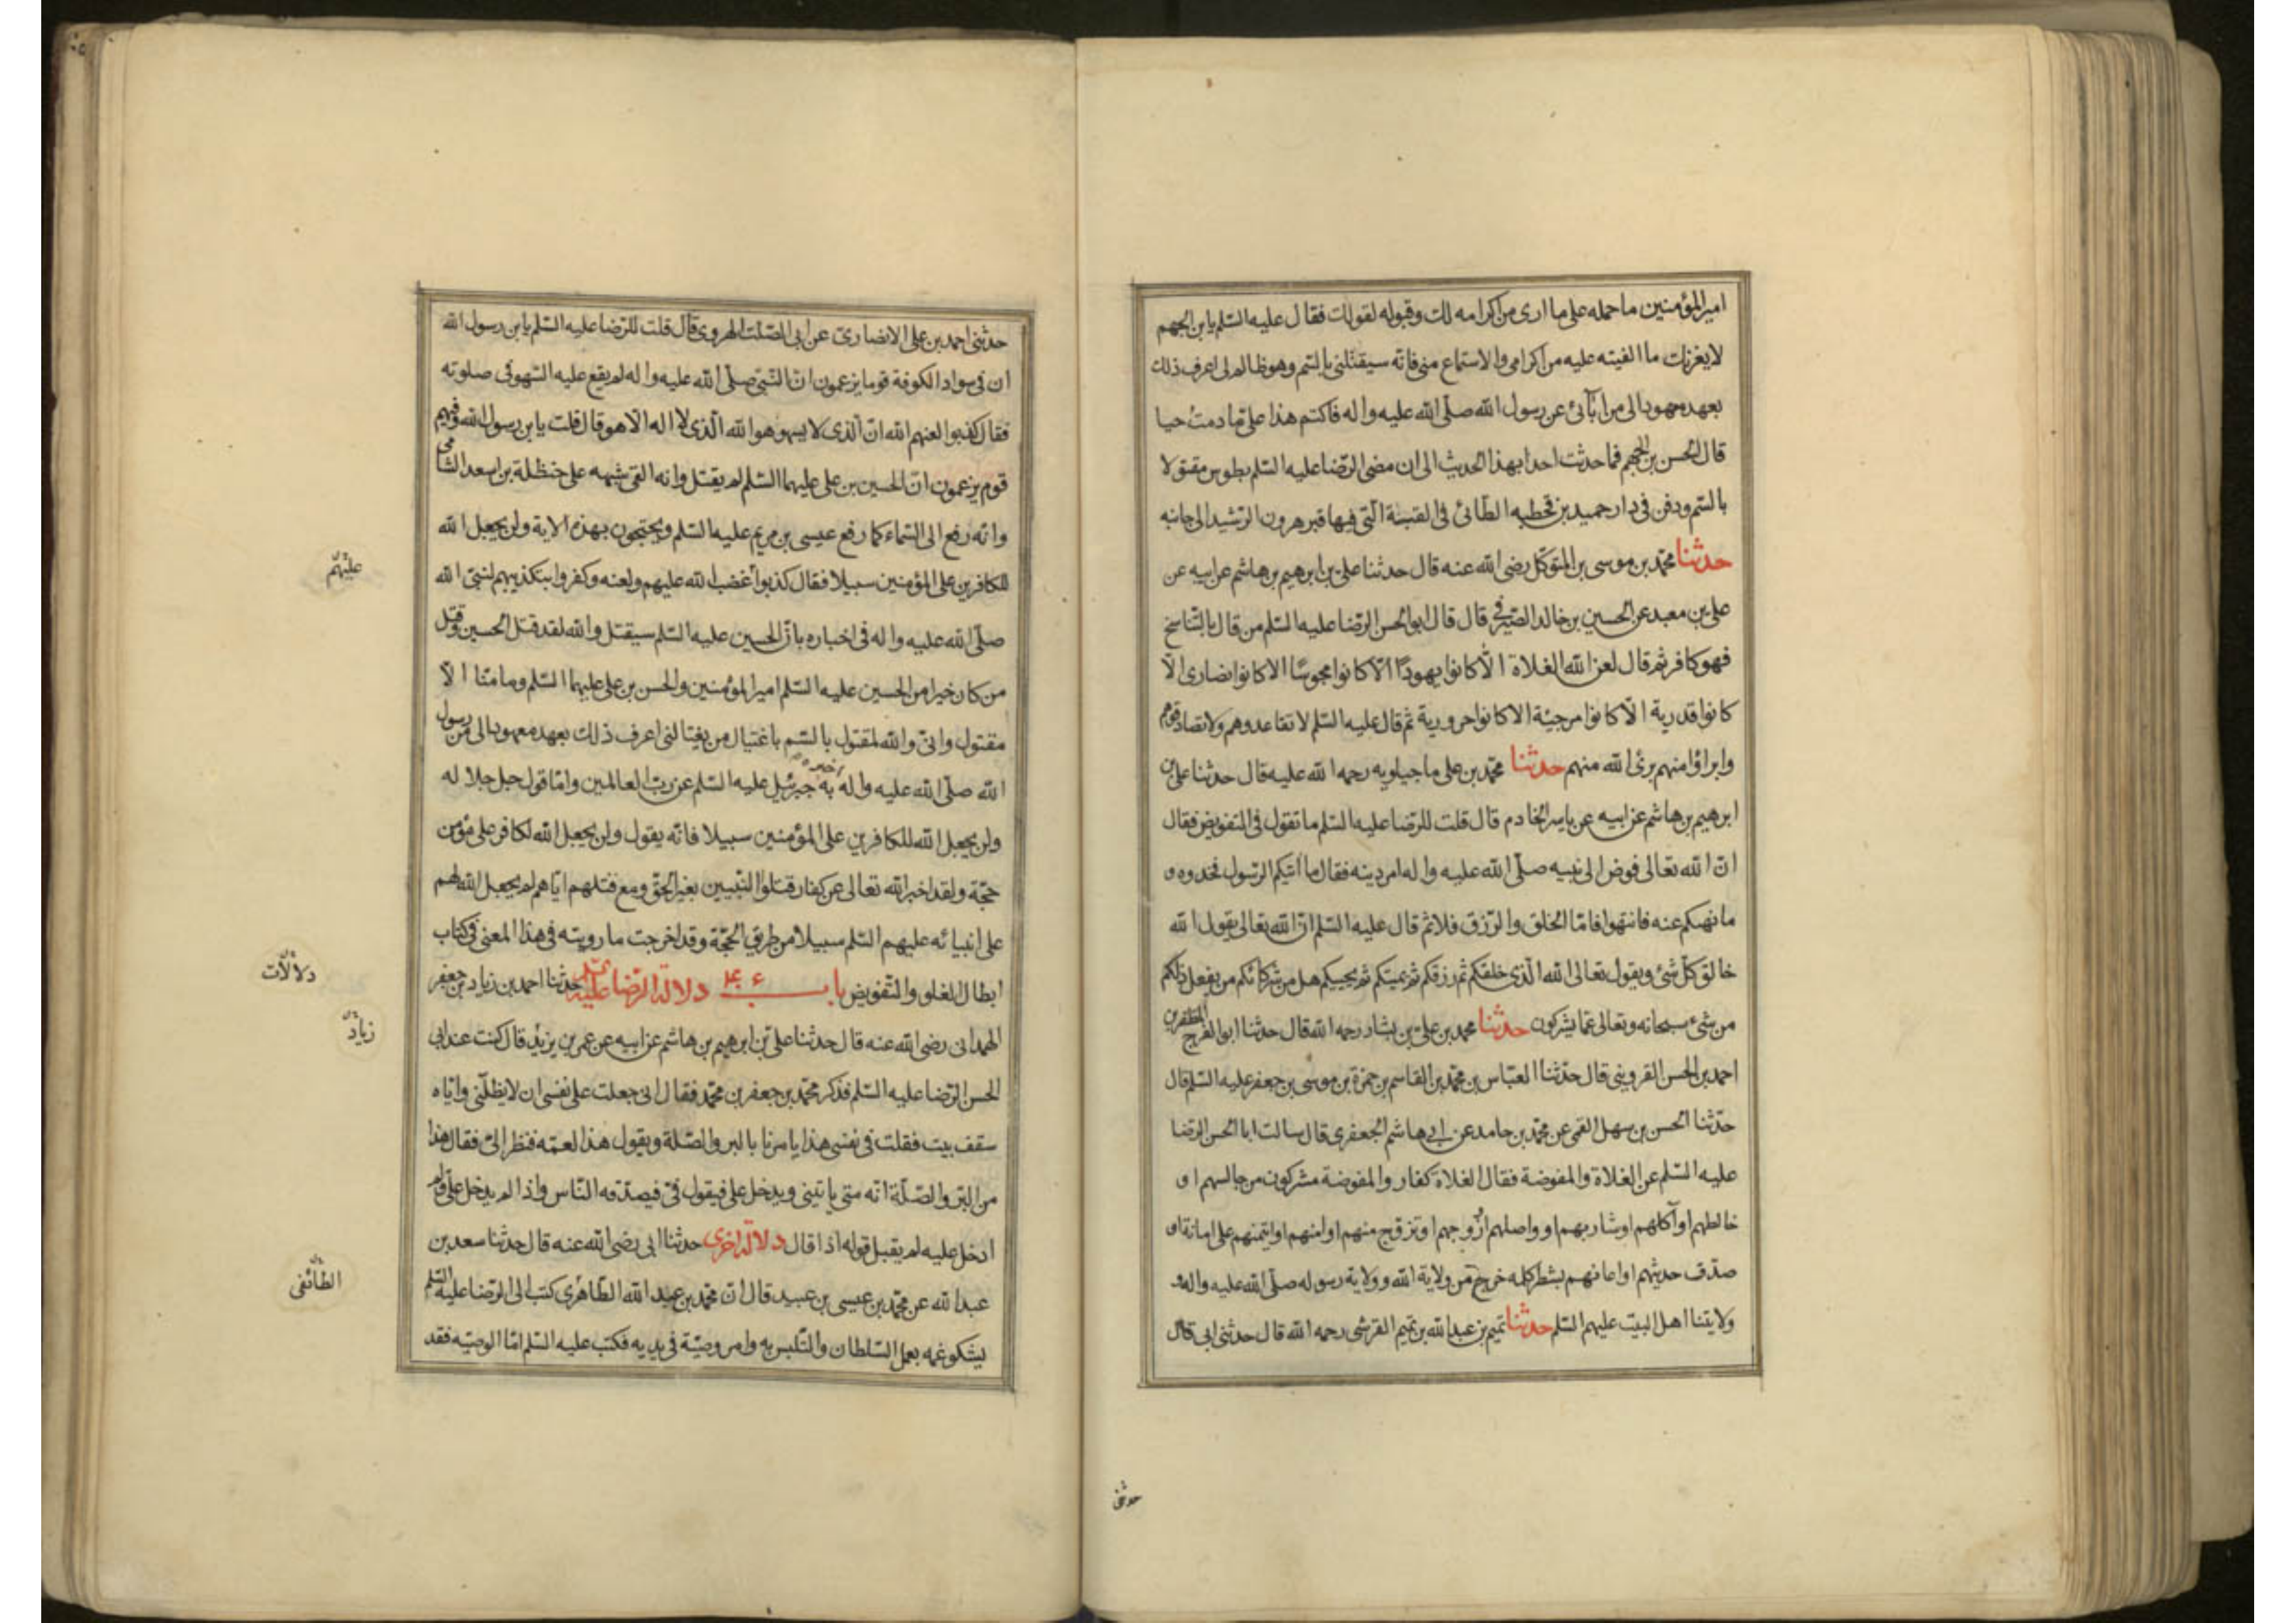 امير المؤمنين ما حمله على ما ارى من اكرامه لك وقبوله لقولك فقال عليه السلم يا بن الجهم
لا يغرنك ما الفيته عليه من اكرامى والاستماع منى فانه سيقتلنى بالسم وهو ظالم لى اعرف ذلك
بعهد معهود الى من آبائى عن رسول الله صلى الله عليه واله فاكتم هذا على ما دمت حيا
قال الحسن بن الجهم فما حدثت احدا بهذا الحديث الى ان مضى الرضا عليه السلم بطوس مقتولا
بالسم ودفن فى دار حميد بن قحطبه الطائى فى القبة التى فيها قبر هرون الرشيد الى جانبه
حدثنا محمد بن موسى بن المتوكل رضى الله عنه قال حدثنا على بن ابرهيم بن هاشم عن ابيه عن
على بن معبد عن الحسين بن خالد الصيرفى قال قال ابو الحسن الرضا عليه السلم من قال بالتناسخ
فهو كافر ثم قال لعن الله الغلاة الا كانوا يهودا الا كانوا مجوسا الا كانوا نصارى الا
كانوا قدرية الا كانوا مرجئة الا كانوا حرورية ثم قال عليه السلم لا تقاعدوهم ولا تصادقوهم
وابراؤا منهم برئ الله منهم حدثنا محمد بن على ماجيلويه رحمه الله عليه قال حدثنا على بن
ابرهيم بن هاشم عن ابيه عن ياسر الخادم قال قلت للرضا عليه السلم ما تقول فى التفويض فقال
ان الله تعالى فوض الى نبيه صلى الله عليه واله امر دينه فقال ما اتيكم الرسول فخذوه و
ما نهيكم عنه فانتهوا فاما الخلق والرزق فلا ثم قال عليه السلم ان الله تعالى يقول الله
خالق كل شئ ويقول تعالى الله الذى خلقكم ثم رزقكم ثم يميتكم ثم يحييكم هل من شركائكم من يفعل ذلكم
من شئ سبحانه وتعالى عما يشركون حدثنا محمد بن على بن بشار رحمه الله قال حدثنا ابو الفرج المظفر بن
احمد بن الحسن القزوينى قال حدثنا العباس بن محمد بن القاسم بن حمزة بن موسى بن جعفر عليه السلم قال
حدثنا الحسن بن سهل القمى عن محمد بن حامد عن ابى هاشم الجعفرى قال سالت ابا الحسن الرضا
عليه السلم عن الغلاة والمفوضة فقال الغلاة كفار والمفوضة مشركون من جالسهم او
خالطهم او آكلهم او شاربهم او واصلهم او زوجهم او تزوج منهم او امنهم او ايتمنهم على امانة او
صدق حديثهم او اعانهم بشطر كلمه خرج من ولاية الله وولاية رسوله صلى الله عليه واله و
ولايتنا اهل البيت عليهم السلم حدثنا تميم بن عبد الله بن تميم القرشى رحمه الله قال حدثنى ابى قال
حدثنى
حدثنى احمد بن على الانصارى عن ابى الصلت الهروى قال قلت للرضا عليه السلم يا بن رسول الله
ان فى سواد الكوفة قوما يزعمون ان النبى صلى الله عليه واله لم يقع عليه السهو فى صلوته
فقال كذبوا لعنهم الله ان الذى لا يسهو هو الله الذى لا اله الا هو قال قلت يا بن رسول الله وفيهم
قوم يزعمون ان الحسين بن على عليهما السلم لم يقتل وانه القى شبهه على حنظلة بن اسعد الشامى
وانه رفع الى السماء كما رفع عيسى بن مريم عليه السلم ويحتجون بهذه الاية ولن يجعل الله
للكافرين على المؤمنين سبيلا فقال كذبوا غضب الله عليهم ولعنه وكفروا بتكذيبهم لنبى الله
عليهم
صلى الله عليه واله فى اخباره بان الحسين عليه السلم سيقتل والله لقد قتل الحسين وقتل
من كان خيرا من الحسين عليه السلم امير المؤمنين والحسن بن على عليهما السلم وما منا الا
مقتول وانى والله لمقتول بالسم باغتيال من يغتالنى اعرف ذلك بعهد معهود الى من رسول
الله صلى الله عليه واله اخبره به جبرئيل عليه السلم عن رب العالمين واما قول جل جلاله
ولن يجعل الله للكافرين على المؤمنين سبيلا فانه يقول ولن يجعل الله لكافر على مؤمن
حجة ولقد اخبر الله تعالى عن كفار قتلوا النبيين بغير الحق ومع قتلهم اياهم لم يجعل الله لهم
على انبيائه عليهم السلم سبيلا من طريق الحجة وقد اخرجت ما رويته فى هذا المعنى فى كتاب
ابطال الغلو والتفويض باب دلالة الرضا عليه حدثنا احمد بن زياد بن جعفر
دلالات
الهمدانى رضى الله عنه قال حدثنا على بن ابرهيم بن هاشم عن ابيه عن عمر بن يزيد قال كنت عند ابى
زياد
الحسن الرضا عليه السلم فذكر محمد بن جعفر بن محمد فقال انى جعلت على نفسى ان لا يظلنى واياه
سقف بيت فقلت فى نفسى هذا يامرنا بالبر والصلة ويقول هذا لعمه فنظر الى فقال هذا
من البر والصلة انه متى ياتينى ويدخل على فيقول فى فيصدقه الناس واذا لم يدخل على ولم
ادخل عليه لم يقبل قوله اذا قال دلالة اخرى حدثنا ابى رضى الله عنه قال حدثنا سعد بن
عبد الله عن محمد بن عيسى بن عبيد قال ان محمد بن عبد الله الطاهرى كتب الى الرضا عليه السلم
الطائفى
يشكو عمه بعمل السلطان والتلبس به وامر وصيته فى يديه فكتب عليه السلم اما الوصيه فقد